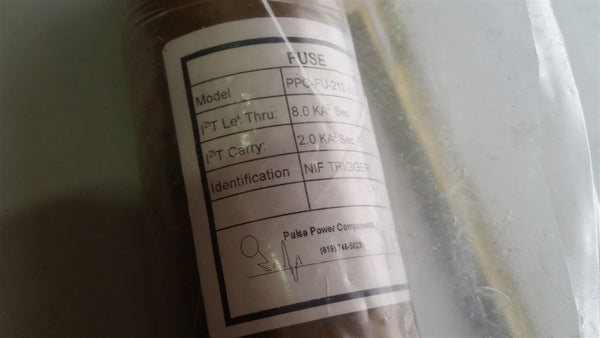 FUSE
Model PPC-FU-212-
I²T Let Thru: 8.0 KA² Sec
I²T Carry: 2.0 KA² Sec
Identification NIF TRIGGER
Pulse Power Components
(619) 748-5023